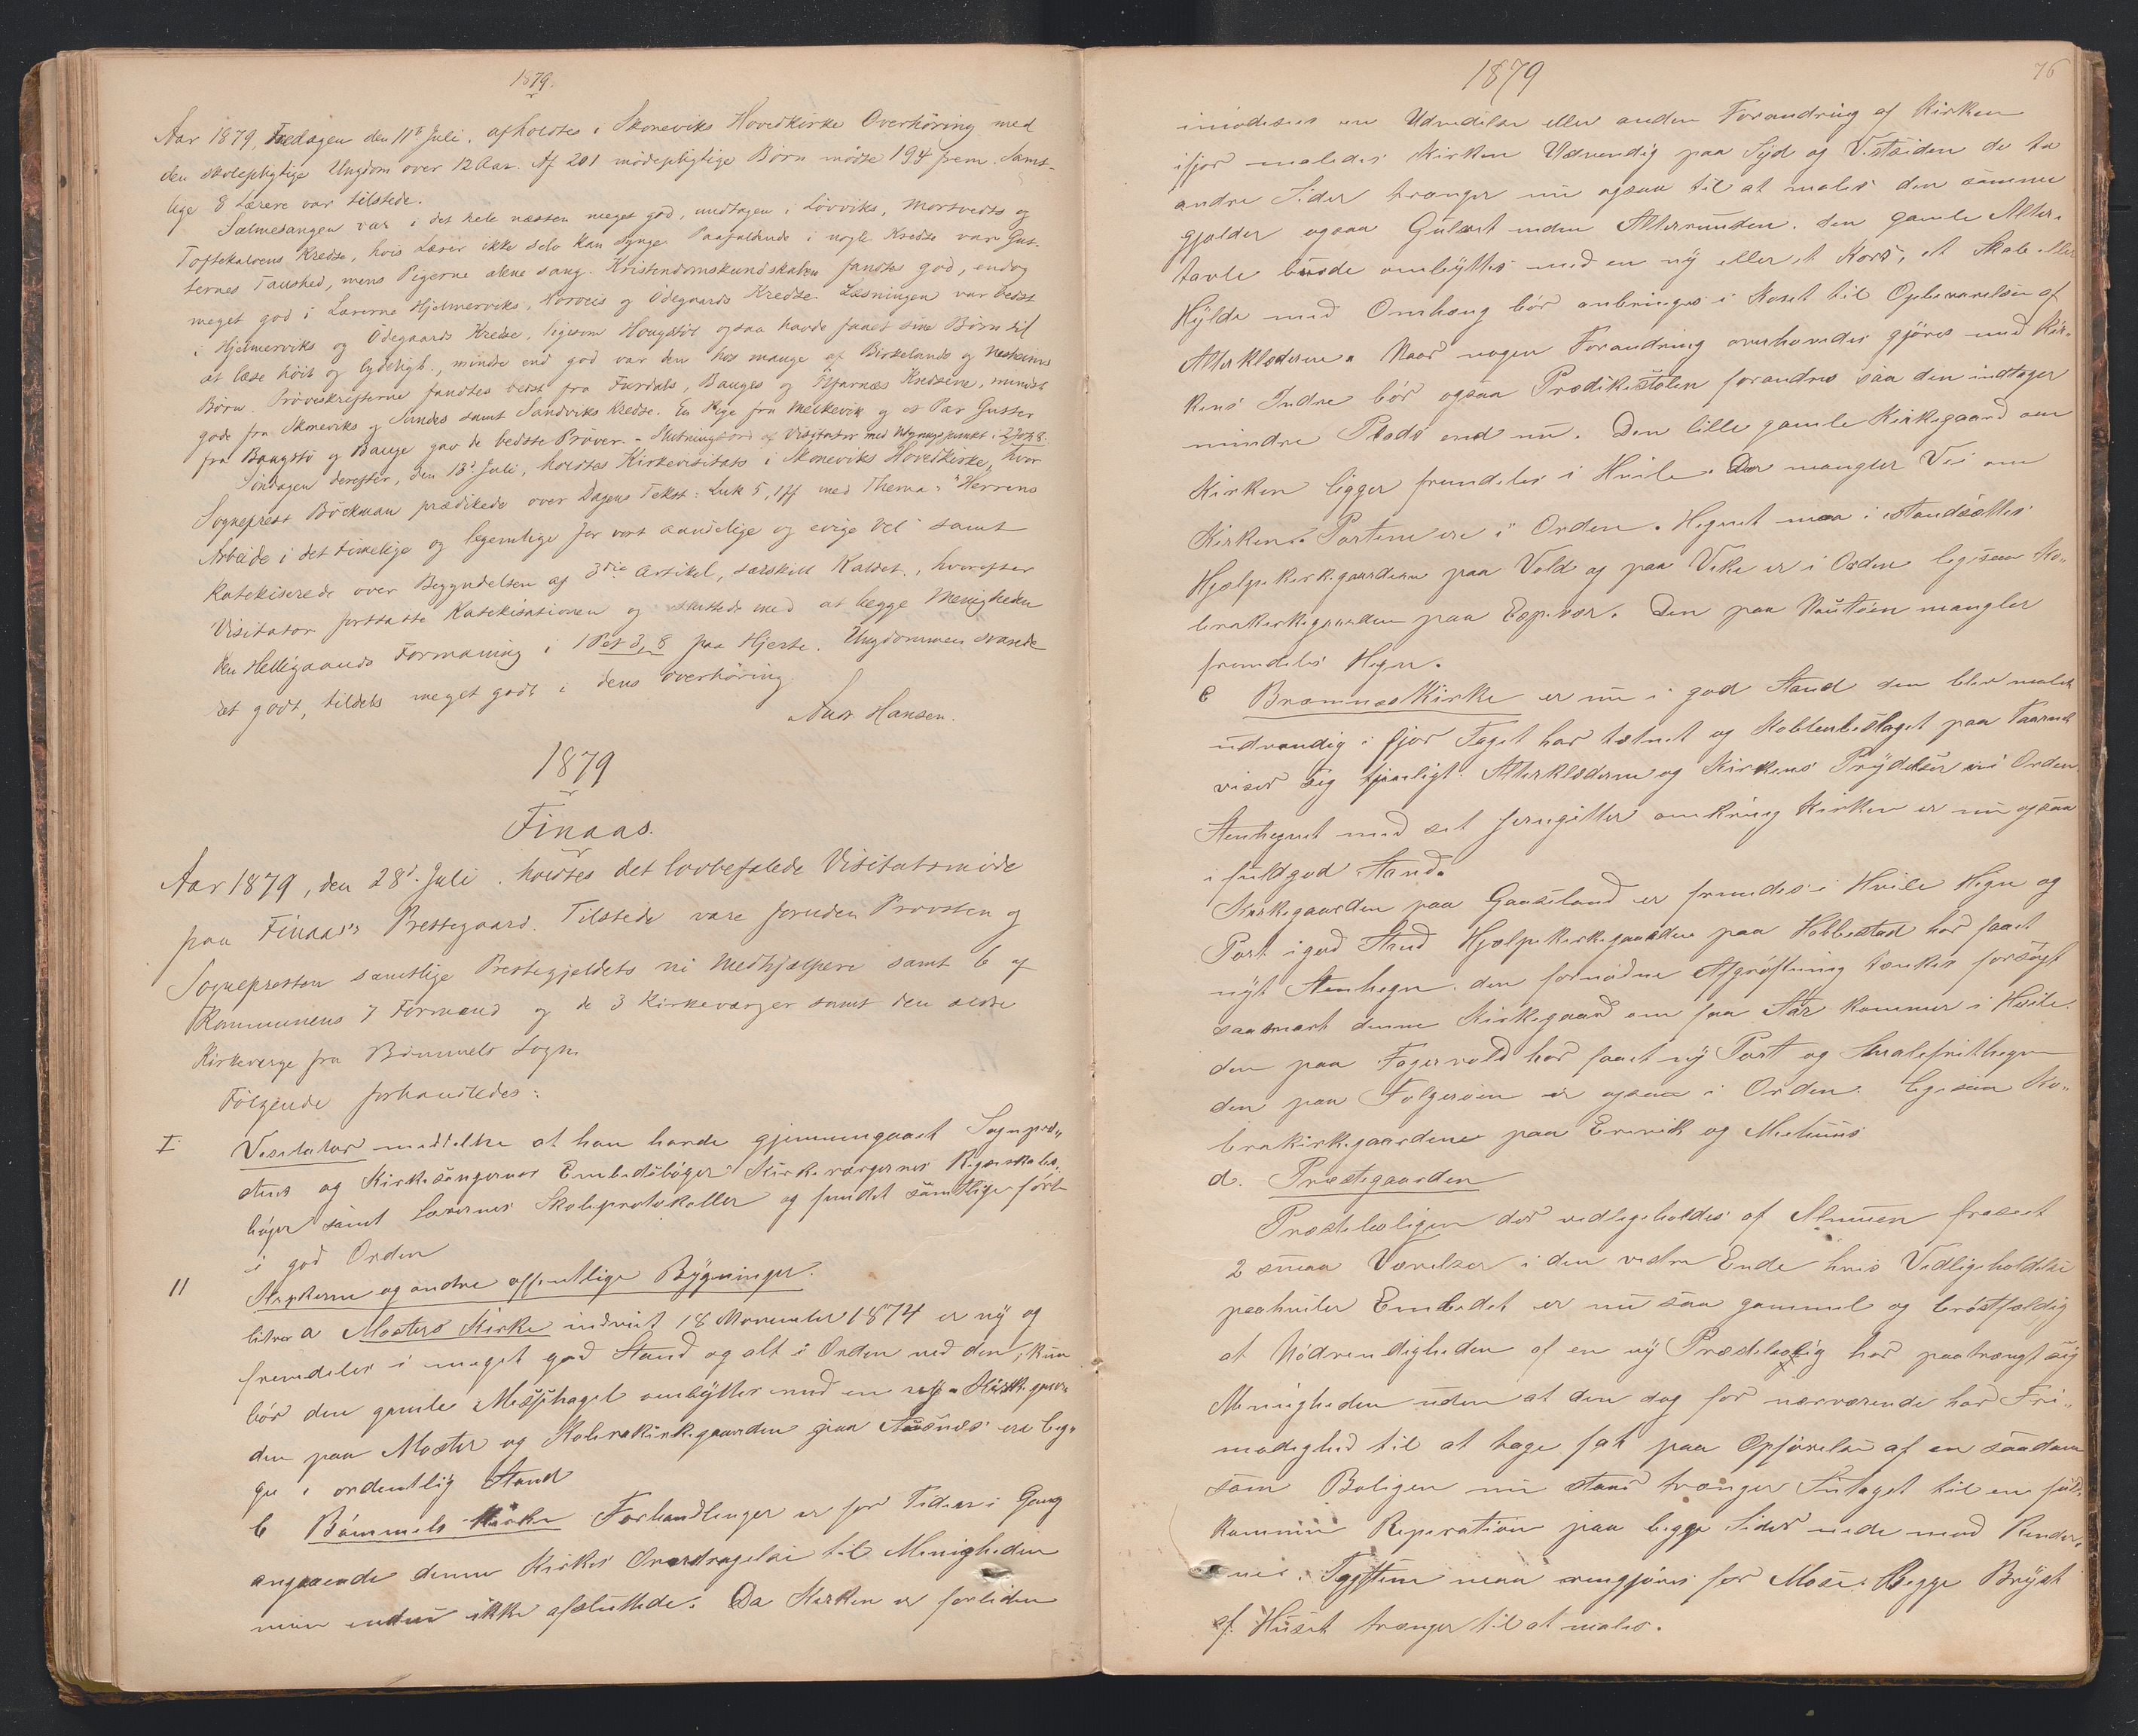 1879.
Aar 1879, Fredagen den 11te Juli, afholdtes i Skoneviks Hovedkirke Overhöring med
den skolepligtige Ungdom over 12 Aar. Af 201 mödepligtige Börn mödte 194 frem. Samt-
lige 8 Lærere var tilstede.
Salmesangen var i det hele næsten meget god, undtagen i Lövviks, Mortvedts og
Toftekalvens Kredse, hvis Lærer ikke selv kan synge. Paafaldende i nogle Kredse var Gut-
ternes Taushed, mens Pigerne alene sang. Kristendomskundskaben fandtes god, endog
meget god i Lærerne Hjelmerviks, Norveis og Ödegaards Kredse. Læsningen var bedst
i Hjelmerviks og Ödegaards Kredse, ligesom Hougstöl ogsaa havde faaet sine Börn til
at læse höit og lydeligt, mindre end god var den hos mange af Birkelands og Nesheims
Börn. Pröveskrifterne fandtes bedst fra Furdals, Bauges og Kredsene, mindst
gode fra Skoneviks og Sandes samt Sandviks Kredse. En Pige fra Melkevik og et Par Gutter
fra Bangstö og Bauge gav de bedste Pröver. - Slutningsord af Visitator med Udgangspunkt i 2 Joh 8.
Söndagen derefter, den 13de Juli, holdtes Kirkevisitats i Skoneviks Hovedkirke, hvor
Sogneprest Böckman prædikede over Dagens Tekst: Luk 5, 1ff med Thema: "Herrens
Arbeide i det timelige og legemlige for vort aandelige og evige Vel" samt
katekiserede over Begyndelsen af 3die Artikel, særskilt Kaldet, hvorefter
Visitator fortsatte Katekisationen og sluttede med at lægge Menigheden
den Helligaands Formaning i 1 Pet 3, 8 paa Hjerte. Ungdommen svarede
det godt, tildels meget godt i dens Overhöring.
Andr Hansen.
1879
Finaas.
Aar 1879, den 28de Juli, holdtes det lovbefalede Visitatsmöde
paa Finaas's Prestegaard. Tilstede vare foruden Provsten og
Sognepresten samtlige Prestegjeldets ni Medhjælpere samt 6 af
Kommunens 7 Formænd og de 3 Kirkeværger samt den ældre
Kirkeverge fra Bömmels Sogn.
Fölgende forhandledes:
I Visitator meddelte at han havde gjennemgaaet Sognepræ-
stens og Kirkesangernes Embedsböger Kirkeværgernes Regnskabs-
böger samt Lærernes Skoleprotokoller og fundet samtlige förte
i god Orden
II Kirkerne og andre offentlige Bÿgninger.
litra a Mosters Kirke indviet 18 November 1874 er nÿ og
fremdeles i meget god Stand og alt i Orden ved den, kun
bör den gamle Messehagel ombÿttes med en nÿ. Kirkegaar-
den paa Moster og Kolerakirkegaarden paa Aasnæs ere beg-
ge i ordentlig Stand
b Bömmels Kirke Forhandlinger er for Tiden i Gang
angaaende denne Kirkes Overdragelse til Menigheden
men endnu ikke afsluttede. Da Kirken er forliden
1879
76
imödesees en Udvidelse eller anden Forandring af Kirken
ifjor maledes Kirken Udvendig paa Sÿd og Vestsiden de to
andre Sider trænger nu ogsaa til at males den samme
gjælder ogsaa Gulvet inden Alterrunden. den gamle Alter-
tavle burde ombÿttes med en nÿ eller et Kors, et Skab eller
Hÿlde med Omhæng bör anbringes i Koret til Opbevarelse af
Alterklæderne. Naar nogen Forandring overhovedet gjöres med Kir-
kens Indre bör ogsaa Prædikestolen forandres saa den indtager
mindre Plads end nu. Den lille gamle Kirkegaard om
Kirken ligger fremdeles i Hvile. Der mangler Vei om
Kirken. Porten ere i Orden. Hegnet maa istandsættes
Hjælpekirkegaardene paa Vold og paa Vike er i Orden ligesaa Ko-
lerakirkegaarden paa Espevær. Den paa Nautöen mangler
fremdeles Hegn.
c Bremnæs Kirke er nu i god Stand den blev malet
udvendig i fjor Taget har tætnet og Kobberbeslaget paa Taarnet
viser sig tjenligt. Alterklæderne og Kirkens Prÿdelser er i Orden
Stenhegnet med sit Jerngitter omkring Kirken er nu ogsaa
i fuldgod Stand.
Kirkegaarden paa Gaasland er fremdeles i Hvile Hegn og
Port i god Stand Hjælpekirkegaarden paa Habbestad har faaet
nÿt Stenhegn, den fornödne Afgröftning tænkes forsögt
saasnart denne Kirkegaard om faa Aar kommer i Hvile.
den paa Fagervold har faaet nÿ Port og Smalefrithegn
den paa Folgeröen er ogsaa i Orden. ligesaa Ko-
lerakirkegaardene paa Ervik og Mælums
d. Præstegaarden
Præsteboligen der vedligeholdes af Almuen fraseet
2 smaa Værelser i den vestre Ende hvis Vedligeholdelse
paahviler Embedet er nu saa gammel og bröstfældig
at Nödvendigheden af en nÿ Præstebolig har paatrængt sig
Menigheden uden at den dog for nærværende har Fri-
modighed til at tage fat paa Opförelse af en saadan
som Boligen nu staar trænger Sutaget til en fuld-
kommen Reparation paa begge Sider nede mod Render-
ne. Tagstene maa rengjöres for Mose. Begge Brÿst
af Huset trænger til at males.